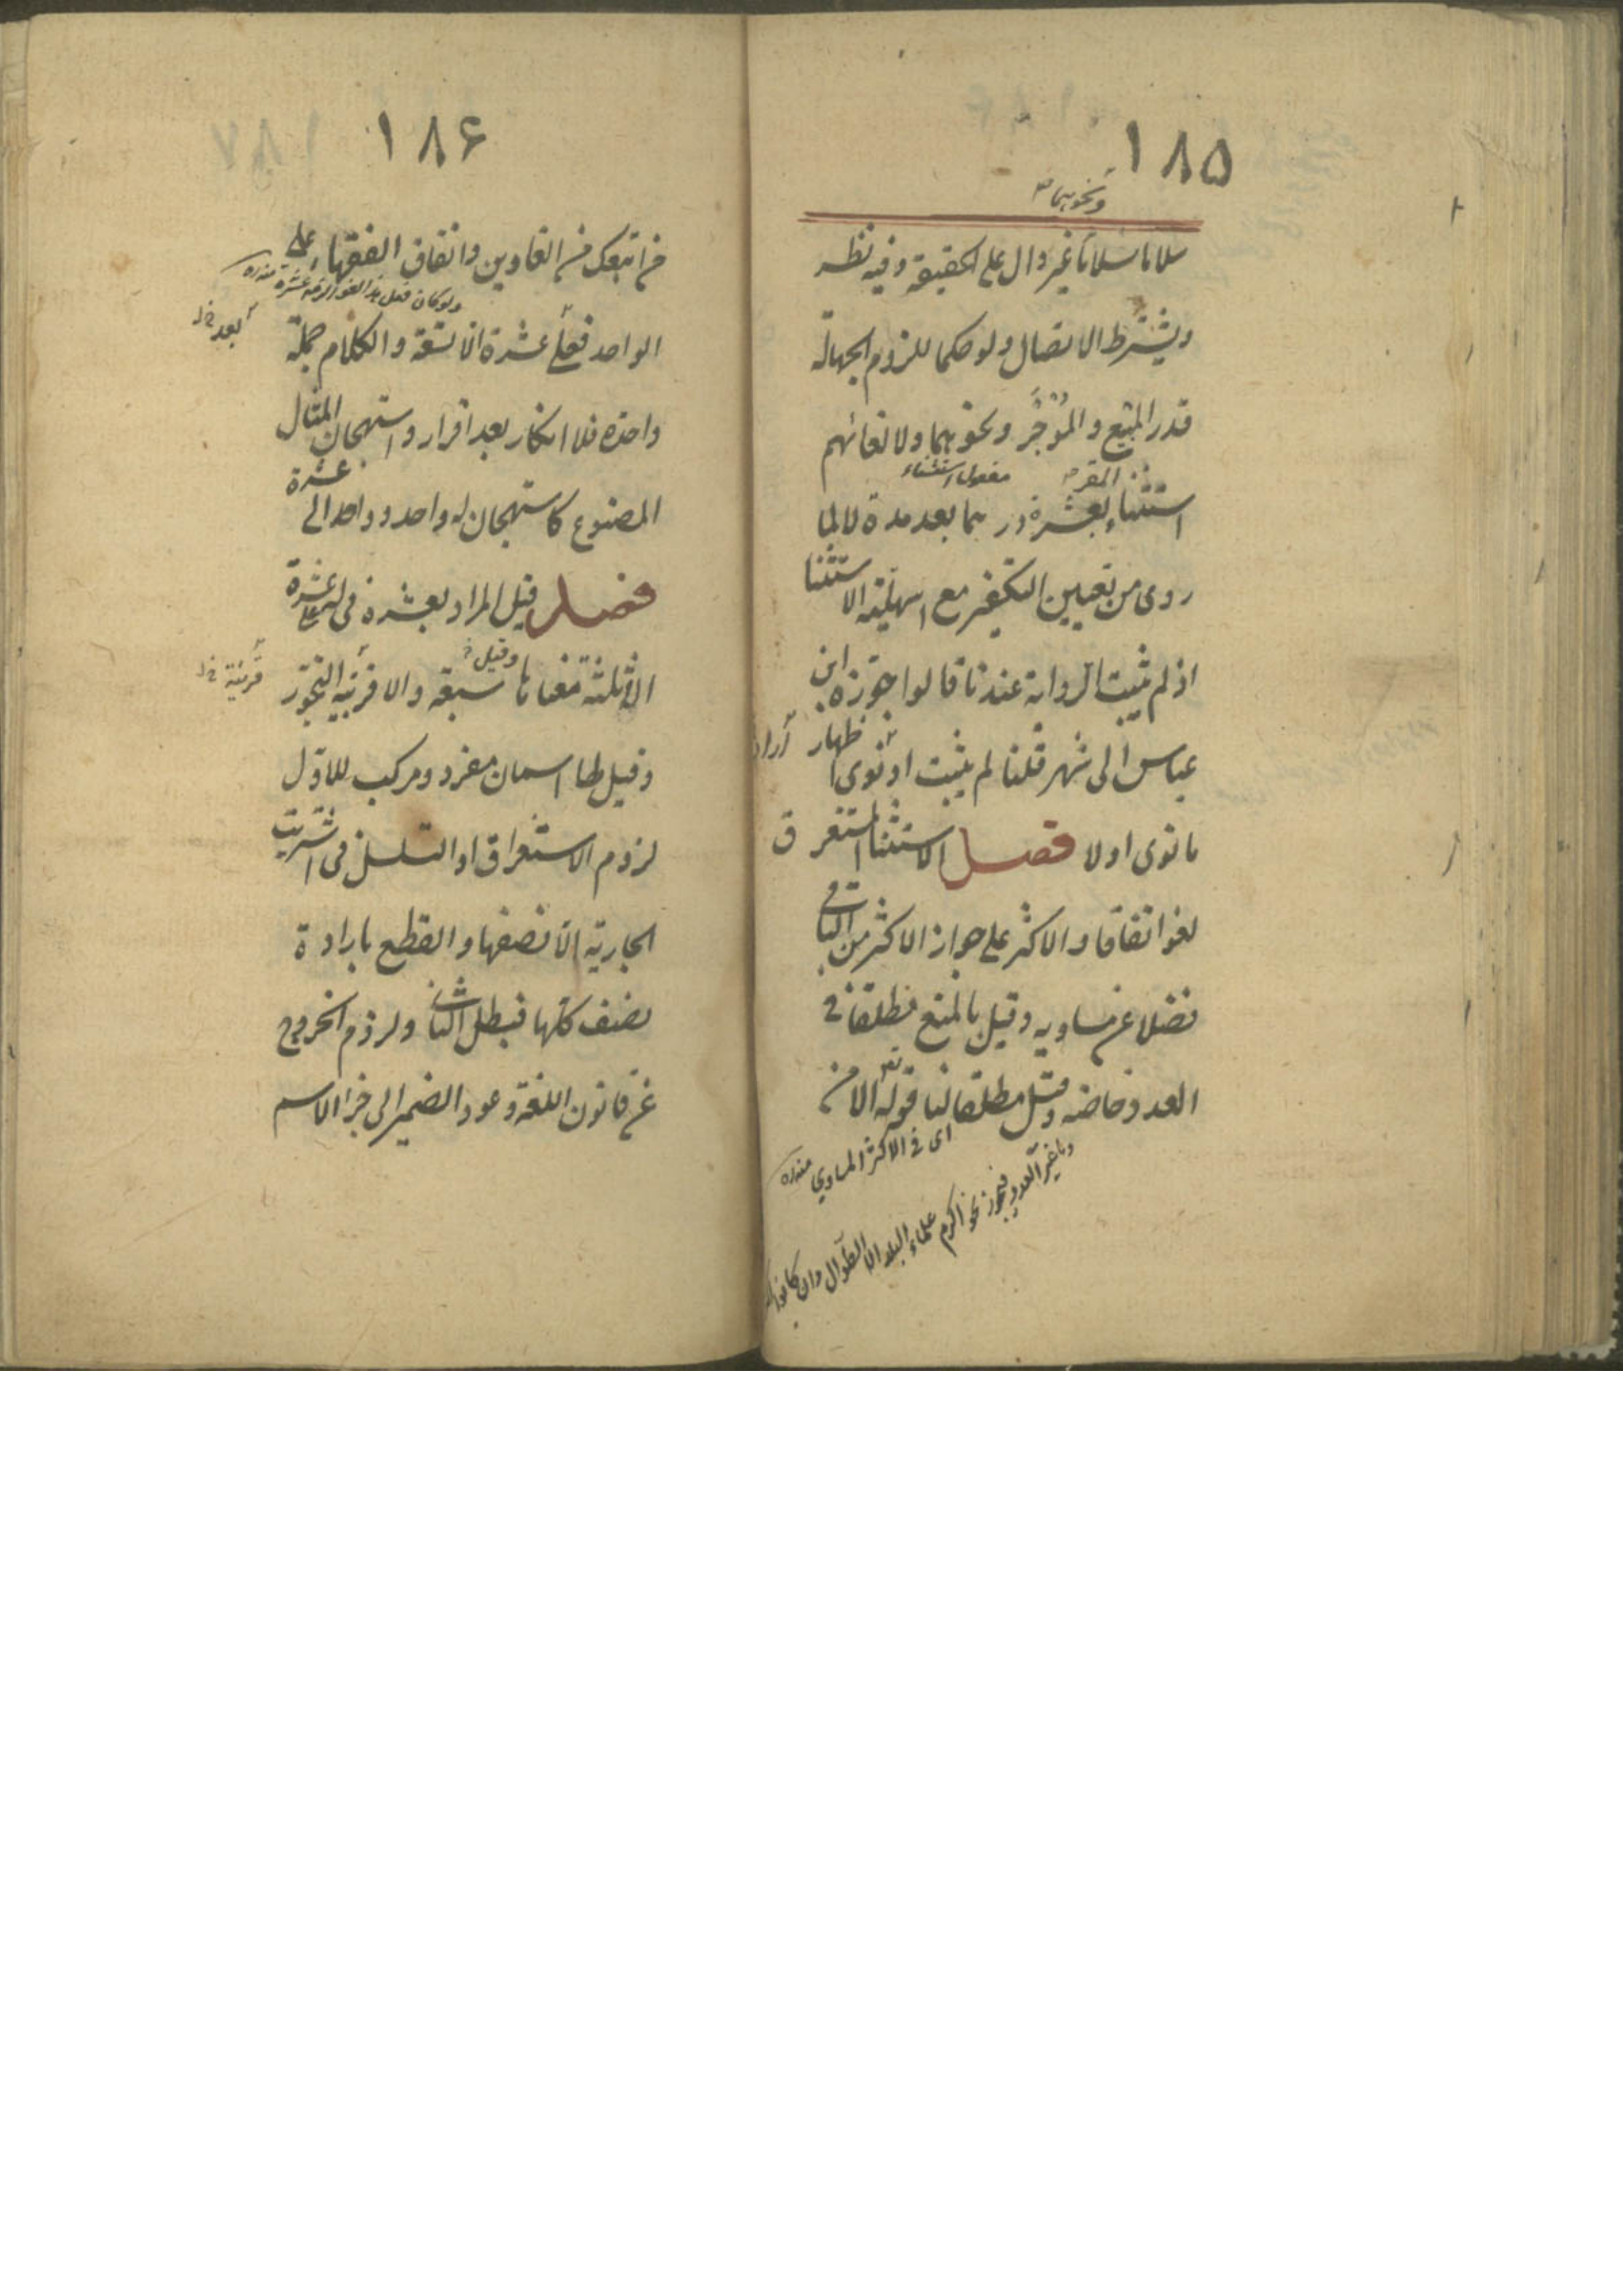 ١٨٥
ونحوهما
سلانا سلانا غير دال على الحقيقة وفيه نظر
ويشترط الاتصال ولو حكما للزوم الجهالة
قدر المبيع والمؤجر ونحوهما ولالغائهم
المقر مفعول استثناء
استثناء بعشرة در هما بعد مدة لا لما
روى من تعيين التكفير مع اسهلية الاستثنا
اذ لم يثبت الرواية عندنا قالوا جوزه ابن
عباس الى شهر قلنا لم يثبت او نوى اظهار
ما نوى اولا فصل الاستثنا المستغرق
لغو اتفاقا والاكثر على جواز الاكثر من الباقى
فضلا عن مساويه وقيل بالمنع مطلقا وفى
العدد خاصة وقيل مطلقا لنا قوله تعالى الا من
اى فى الاكثر المساوى منه ره
واما غير العدد فيجوز نحو اكرم علماء البلد الا الطوال وان كانوا
١٨۶
من اتبعك من الغاوين واتفاق الفقهاء على
الواحد فى على عشرة الا تسعة والكلام جملة
بعد خ ل
واحدة فلا انكار بعد اقرار واستهجان المثال
المصنوع كاستهجان له واحد وواحد الى عشرة
فصل قيل المراد بعشرة فى له على عشرة
الا ثلثة معناها وقيل سبعة والا قرينة التجوز
قرينة خ ل
وقيل لها اسمان مفرد ومركب للاول
لزوم الاستغراق او التسلسل فى اشتريت
الجارية الا نصفها والقطع بارادة
نصف كلها فيبطل الثانى ولزوم الخروج
عن قانون اللغة وعود الضمير الى جزء الاسم